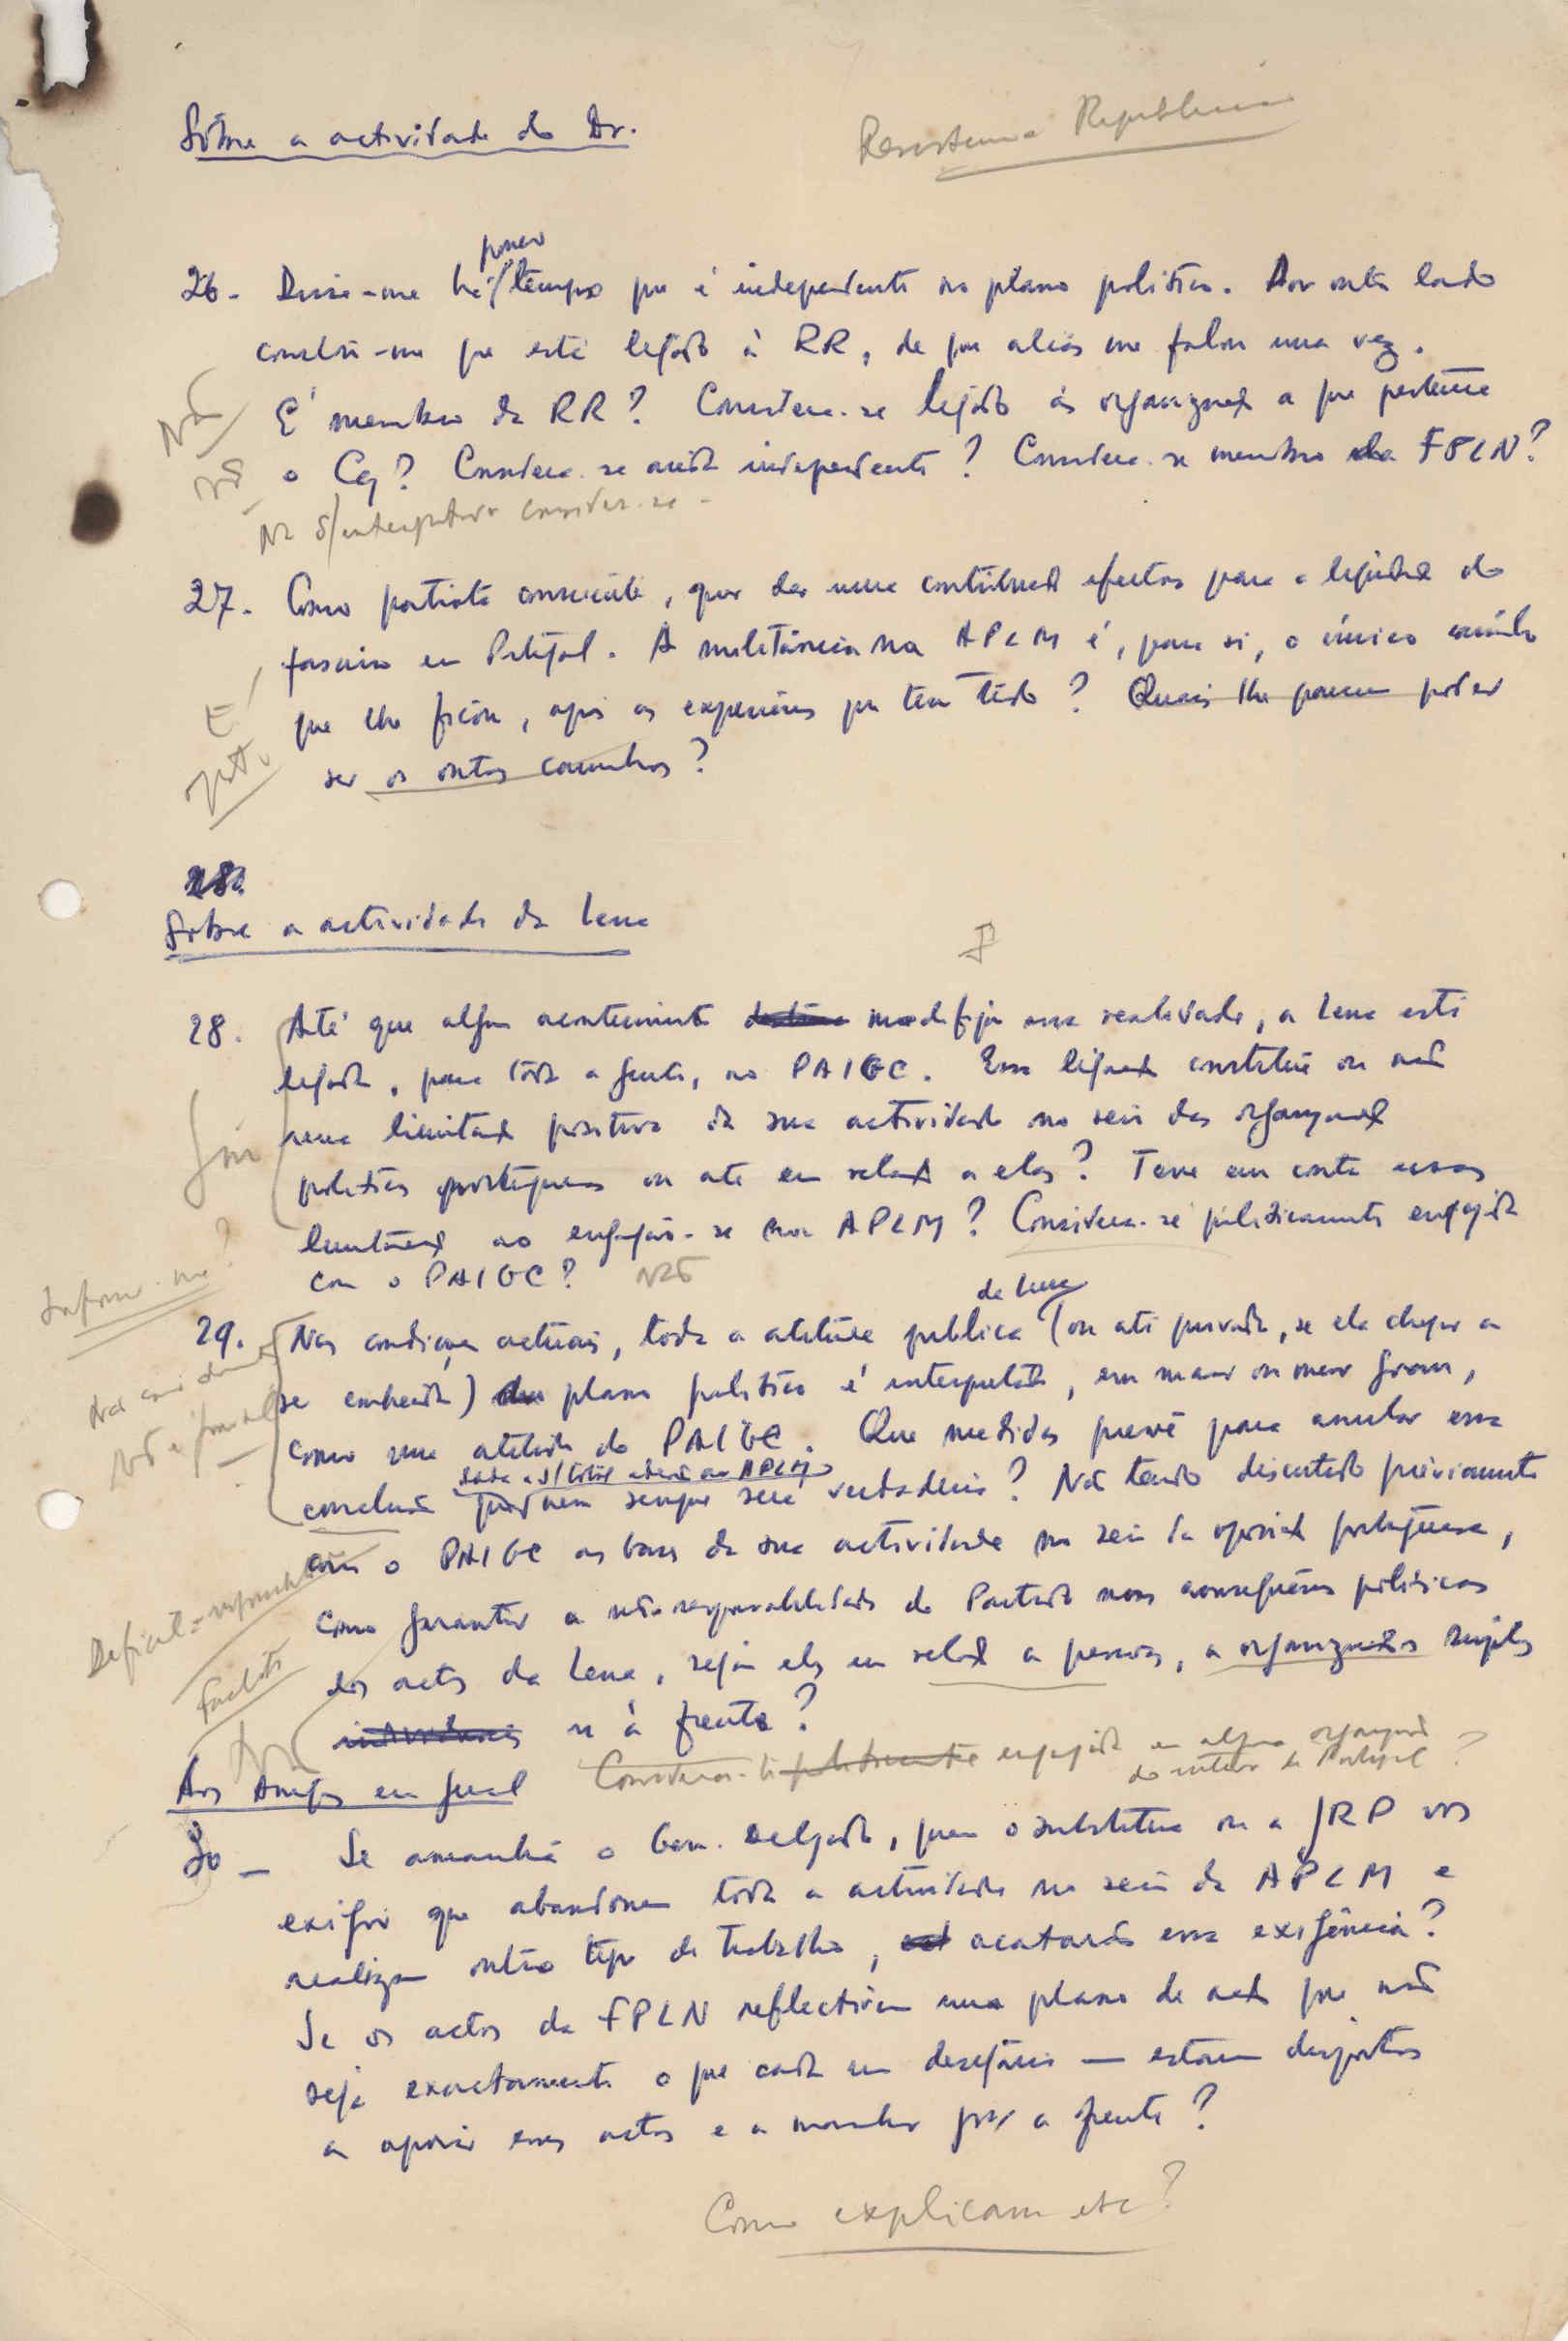 Sôbre a actividade do Dr.
Resistencia Republicana
26- Disse-me há pouco tempo que é independente no plano político. Por outro lado
constou-me que está ligado à RR, de que aliás me falou uma vez.
É membro da RR? Considera-se ligado às organizações a que pertence
o Cq? Considera-se ainda independente? Considera-se membro da FPLN?
Não
Não
Na s/ interpretação considera-se -
27. Como patriota consciente, quer dar uma contribuição efectiva para a liquidação do
fascismo em Portugal. A militância na APLM é, para si, o único caminho
que lhe ficou, após as experiências que tem tido? Quais lhe parecem poder
ser os outros caminhos?
É
28.
Sôbre a actividade da Lena
28. Até que algum acontecimento modifique essa realidade, a Lena está
ligada, para tôda a gente, ao PAIGC. Essa ligação constitui ou não
uma limitação positiva da sua actividade no seio das organizações
políticas portuguesas ou até em relação a elas? Teve em conta essas
limitações ao engajar-se na APLM? Considera-se politicamente engajada
com o PAIGC? Não
Sim
Informou-me?
29. Nas condições actuais, toda a atitude publica da Lena (ou até privada, se ela chegar a
ser conhecida) plano político é interpretada, em maior ou menor grau,
como uma atitude do PAIGC. Que medidas prevê para anular essa
conclusão que nem sempre será verdadeira? Não tendo discutido préviamente
dada a s/ total adesão ao APLM
com o PAIGC as bases da sua actividade no seio da oposição portuguesa,
como garantir a não responsabilidade do Partido nas consequências políticas
dos actos da Lena, sejam elas em relação a pessoas, a organizações simples
ou à frente?
Não
Aos Amigos em geral
Considera-se politicamente engajada em alguma organização
do interior de Portugal?
30 - Se amanhã o Gen. Delgado, quem o substitua ou a JRP vos
exigir que abandonem tôda a actividade no seio da APLM e
realizem outro tipo de trabalho, acatarão essa exigência?
Se os actos da FPLN reflectirem um plano de acção que não
seja exactamente o que cada um desejaria — estarão dispostos
a apoiar esses actos e a marchar para a frente?
Como explicam etc?